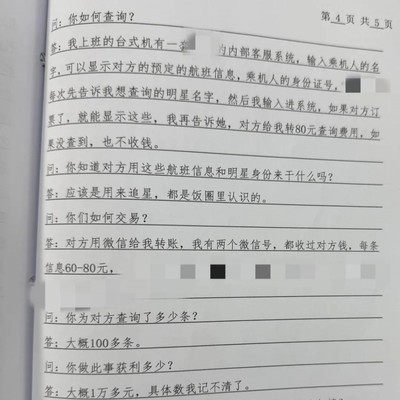 第 4 页 共 5 页
问：你如何查询？
答：我上班的台式机有一 的内部客服系统，输入乘机人的名
字，可以显示对方的预定的航班信息，乘机人的身份证号，
每次先告诉我想查询的明星名字，然后我输入进系统，如果对方订
票了，就能显示这些，我再告诉她，对方给我转80元查询费用，如
果没查到，也不收钱。
问：你知道对方用这些航班信息和明星身份来干什么吗？
答：应该是用来追星，都是饭圈里认识的。
问：你们如何交易？
答：对方用微信给我转账，我有两个微信号，都收过对方钱，每条
信息60-80元，
问：你为对方查询了多少条？
答：大概100多条。
问：你做此事获利多少？
答：大概1万多元，具体数我记不清了。